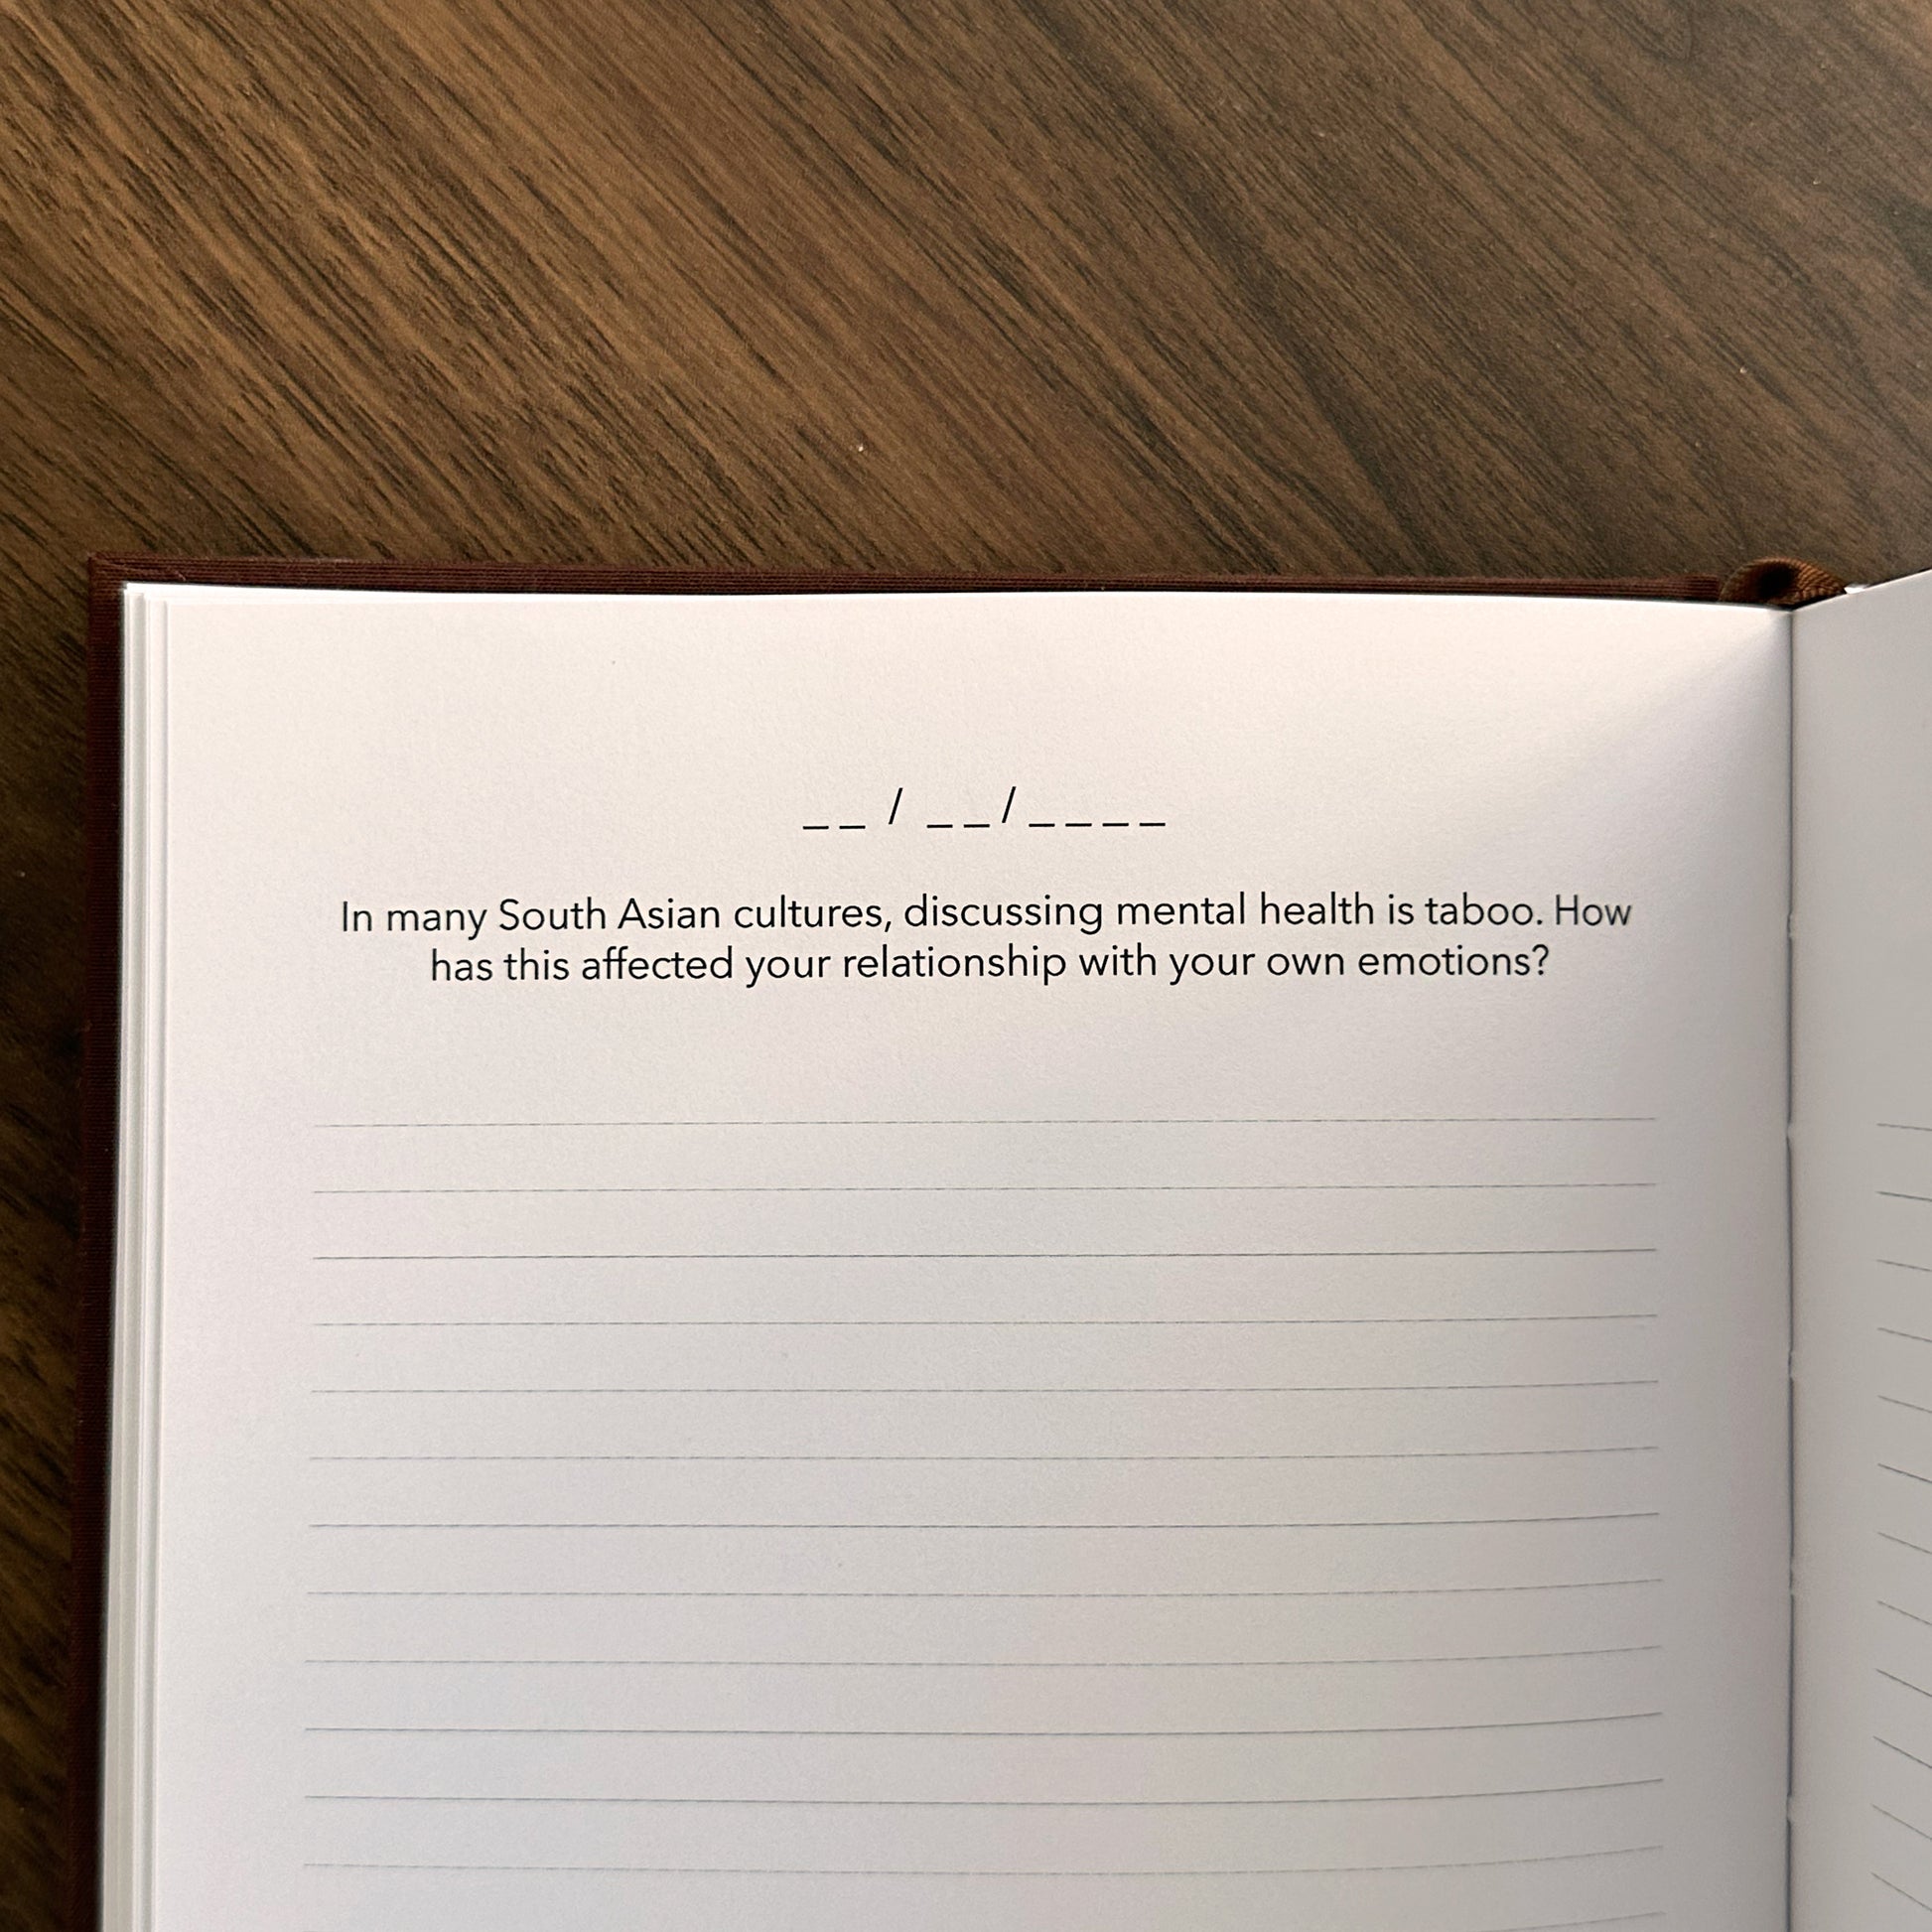 __ / __/____
In many South Asian cultures, discussing mental health is taboo. How
has this affected your relationship with your own emotions?